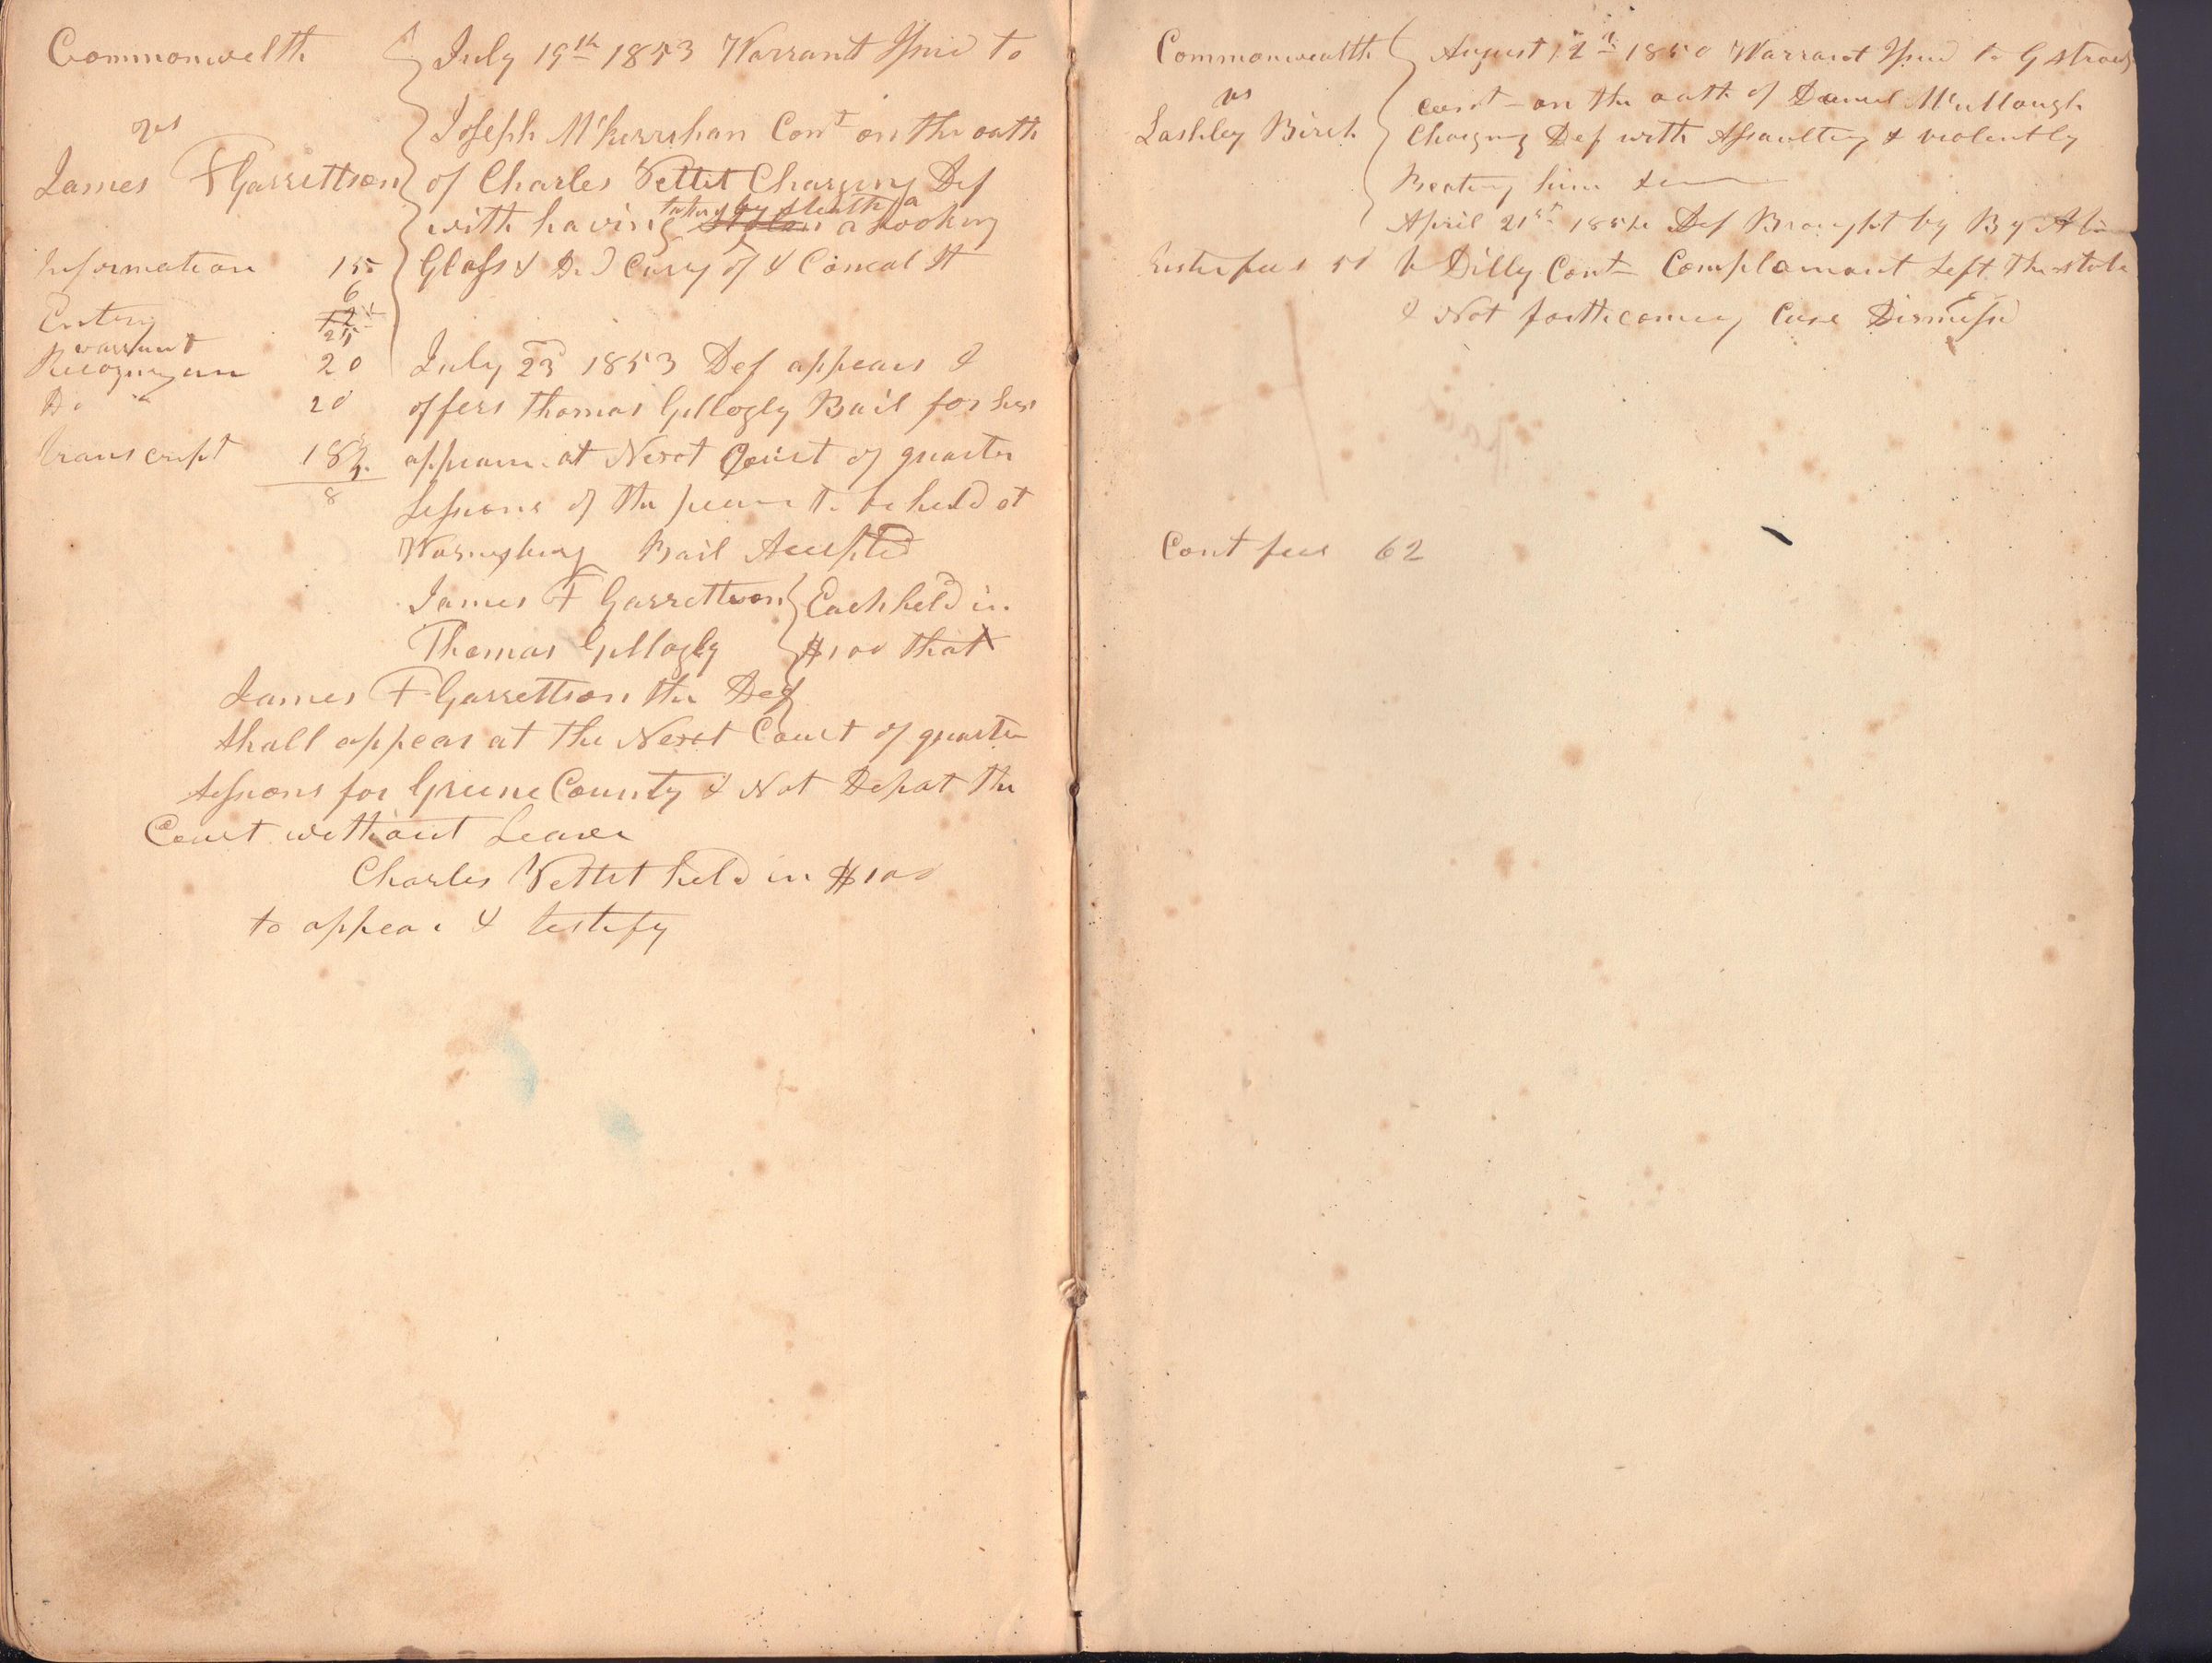 Commonwelth
July 19th 1853 Warrant Issud to
vs
Joseph McKerrihan Cont on the oath
James F Garrettson
of Charles Pettit Charging Def
taking by stealth a
with having Stolen a Looking
Information 15
Glass & Did Cary of & Conceal It
6
Entery 12
warrant 25
Recognizan 20
July 23 1853 Def appears &
Do " 20
offers Thomas Gillogly Bail for his
transcript 18
appearn at Next Court of quarter
8
Sessions of the peace to be held at
Waynsburg Bail Accepted
James F Garrettson Each held in
Thomas Gillogly $100 that
James F Garrettson the Def
shall appear at the Next Court of quarter
sessions for Greene County & Not Depat the
Court without Leave
Charles Pettit held in $100
to appear & testify
Commonwealth
August 12 1850 Warrant Issud to G
vs
Const on the oath of Daniel McCullough
Lashley Birch
Chargng Def with Assaulting & violently
Beating him &c
April 21st 1854 Def Brought by By
Dilly Cont Complainant Left The state
& Not forthcoming Case Dismissd
Cont fees 62